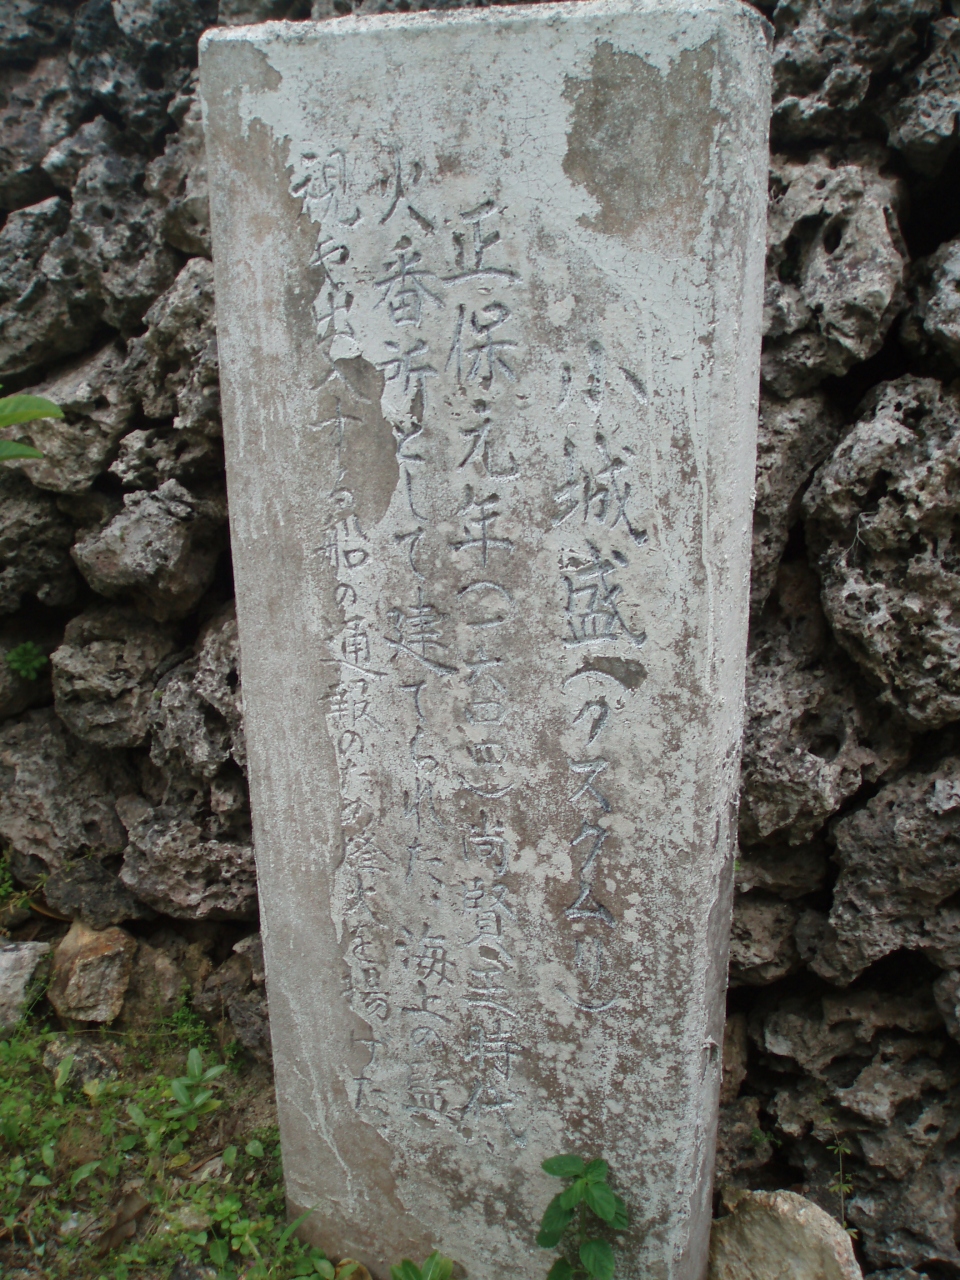 小城盛(グスクムリ)
正保元年(一六四四)尚賢王時代
火番所として建てられた海上の監
視や出入する船の通報のため登火を揚げた